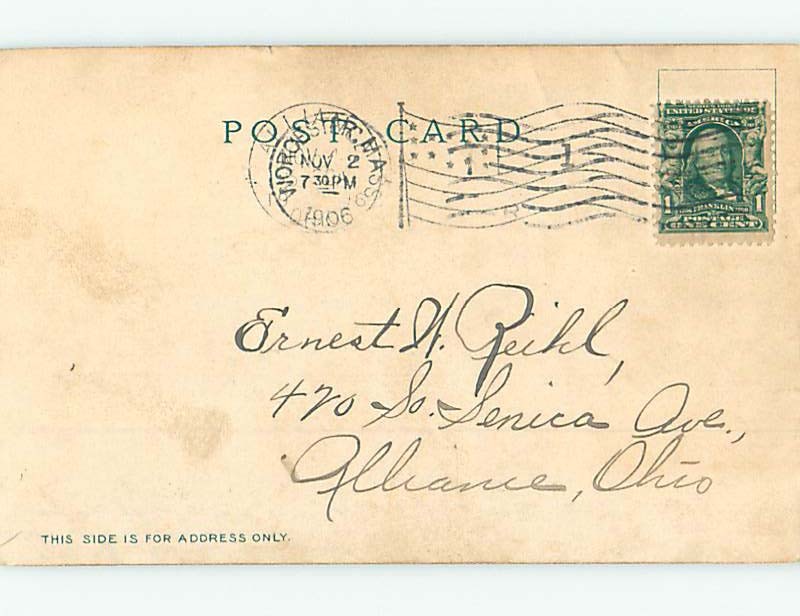 POST CARD
WORCESTER, MASS.
NOV 2
7 30 PM
1906
1
UNITED STATES OF
AMERICA
1 FRANKLIN 1
POSTAGE
ONE CENT
Ernest W. Reihl,
470 So. Senica Ave.,
Alliance, Ohio
THIS SIDE IS FOR ADDRESS ONLY.